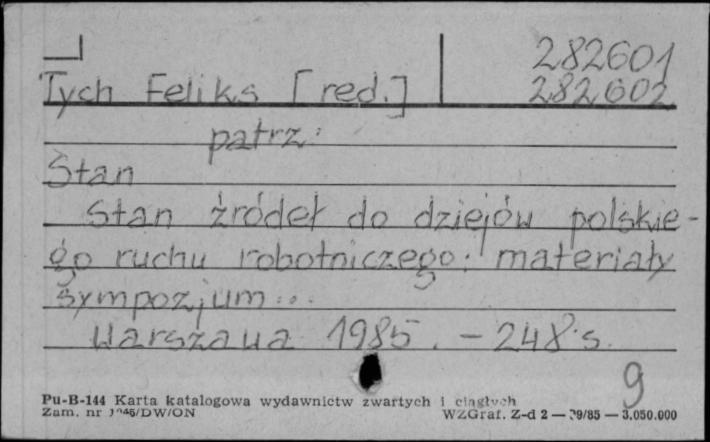 282601
Tych Feliks [red.] 282602
patrz:
Stan
Stan źródeł do dziejów polskie-
go ruchu robotniczego: materiały
sympozjum...
Warszawa 1985. - 248 s.
9
Pu-B-144 Karta katalogowa wydawnictw zwartych i ciągłych
Zam. nr /DW/ON WZGraf. Z-d 2 — 9/85 — 3.050.000